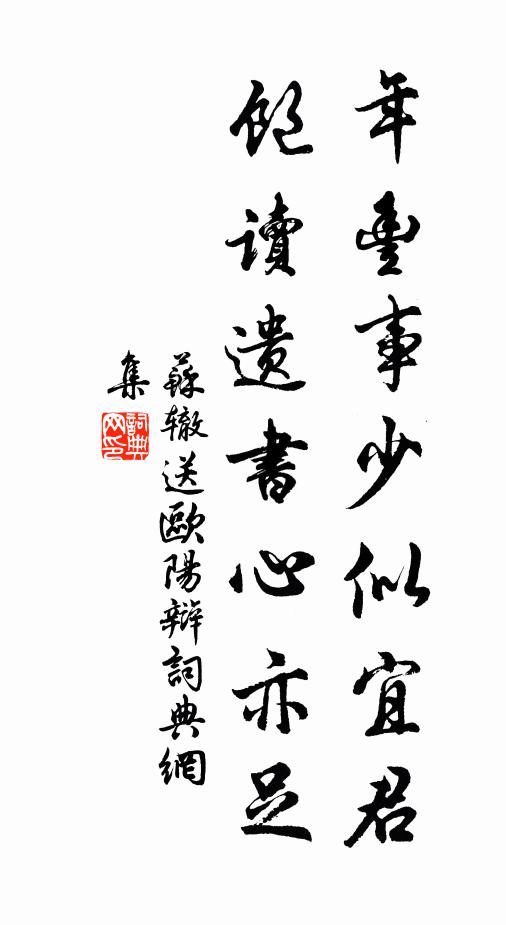 年豊事少似宜君
飽讀遺書心亦足
蘇辙送歐陽辯詞典網
集
詞典网印